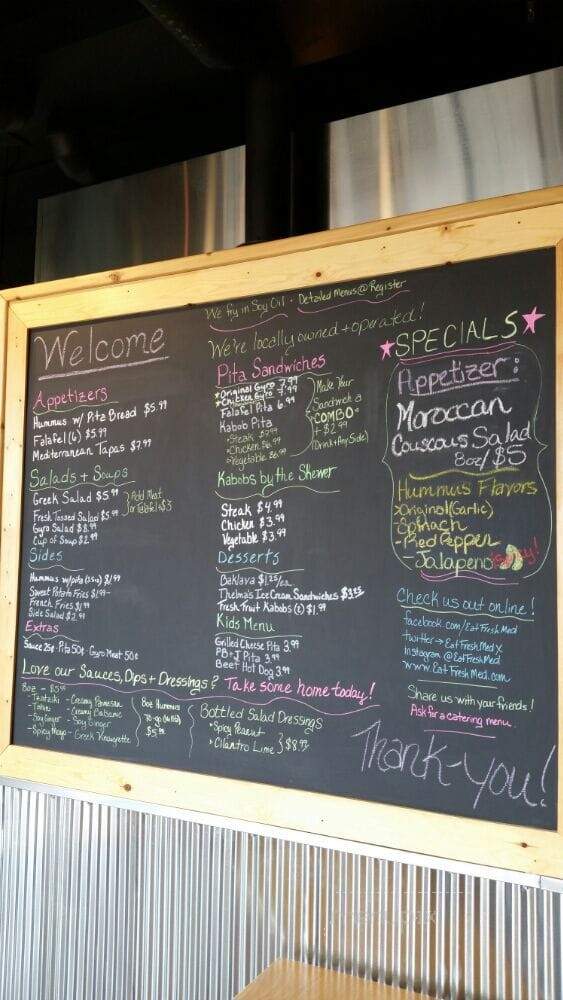 We fry in Soy Oil - Detailed Menus @ Register
We're locally owned + operated!
Welcome
Appetizers
Hummus w/ Pita Bread $5.99
Falafel (6) $5.99
Mediterranean Tapas $7.99
Salads + Soups
Greek Salad $5.99
Fresh Tossed Salad $5.99
Gyro Salad $8.99
Cup of Soup $2.99
Add Meat
or Falafel +$3
Sides
Hummus w/pita $1.99
Sweet Potato Fries $1.99
French Fries $1.99
Side Salad $2.99
Extras
Sauce 25¢ Pita 50¢ Gyro Meat 50¢
Pita Sandwiches
Original Gyro 7.99
Chicken Gyro
Falafel Pita 6.99
Kabob Pita
Steak
Chicken 6.99
Vegetable 6.99
Make Your
Sandwich a
COMBO
+ $2.99
(Drink + Any Side)
Kabobs by the Skewer
Steak $4.99
Chicken $3.99
Vegetable $3.99
Desserts
Baklava
Thelma's Ice Cream Sandwiches
Fresh Fruit Kabobs $1.99
Kids Menu
Grilled Cheese Pita 3.99
PB+J Pita 3.99
Beef Hot Dog 3.99
SPECIALS
Appetizer:
Moroccan
Couscous Salad
8oz/$5
Hummus Flavors
Original (Garlic)
- Spinach
- Red Pepper
- Jalapeno
Check us out online!
facebook.com/EatFreshMed
twitter → EatFreshMedX
Instagram @EatFreshMed
www.EatFreshMed.com
Share us with your friends!
Ask for a catering menu.
Love our Sauces, Dips + Dressings? Take some home today!
8oz - $5.99
- Tzatziki - Creamy Parmesan
- Tahini - Creamy Balsamic
- Soy Ginger
- Spicy Mayo - Greek Vinaigrette
8oz Hummus
To-go
$5.99
Bottled Salad Dressings
Spicy Peanut
Cilantro Lime } $8.99
Thank-you!